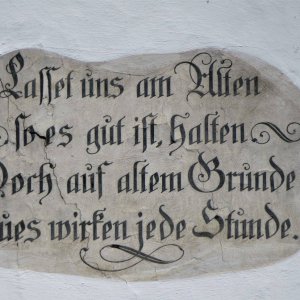 Lasset uns am Alten
so es gut ist, halten
Doch auf altem Grunde
ues wirken jede Stunde.